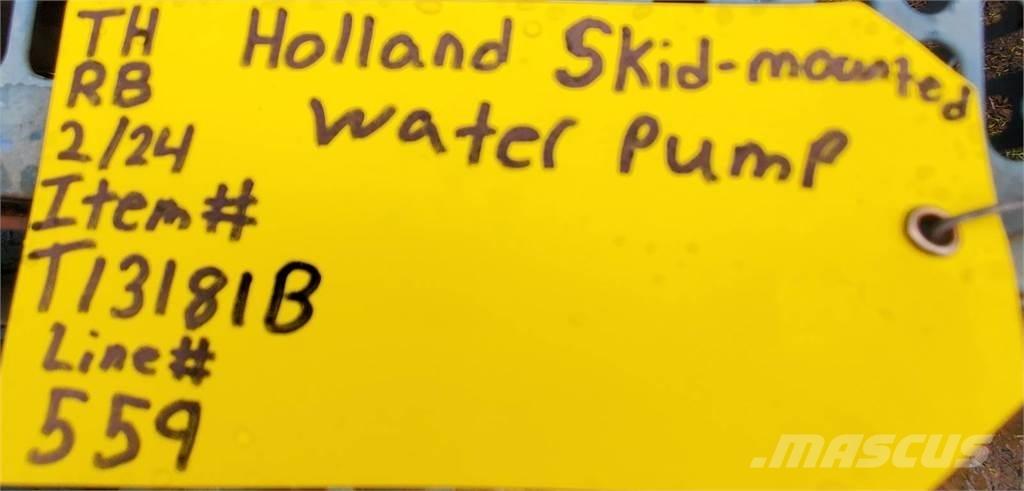 TH
RB
2/24
Item#
T13181B
Line#
559
Holland Skid-mounted
water pump
.MASCUS